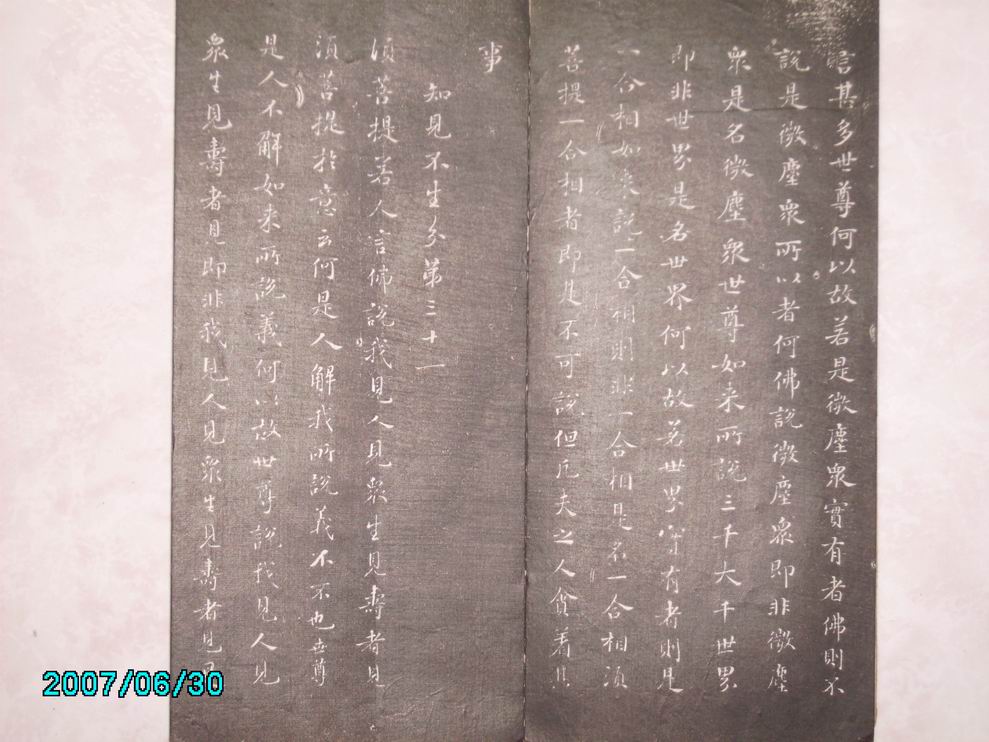 言甚多世尊何以故若是微塵衆實有者佛則不
說是微塵衆所以者何佛說微塵衆即非微塵
衆是名微塵衆世尊如来所說三千大千世界
即非世界是名世界何以故若世界實有者則是
一合相如来說一合相則非一合相是名一合相須
菩提一合相者即是不可說但凡夫之人貪着其
事
知見不生分第三十一
須菩提若人言佛說我見人見衆生見壽者見
須菩提於意云何是人解我所說義不不也世尊
是人不解如来所說義何以故世尊說我見人見
衆生見壽者見即非我見人見衆生見壽者見是
2007/06/30